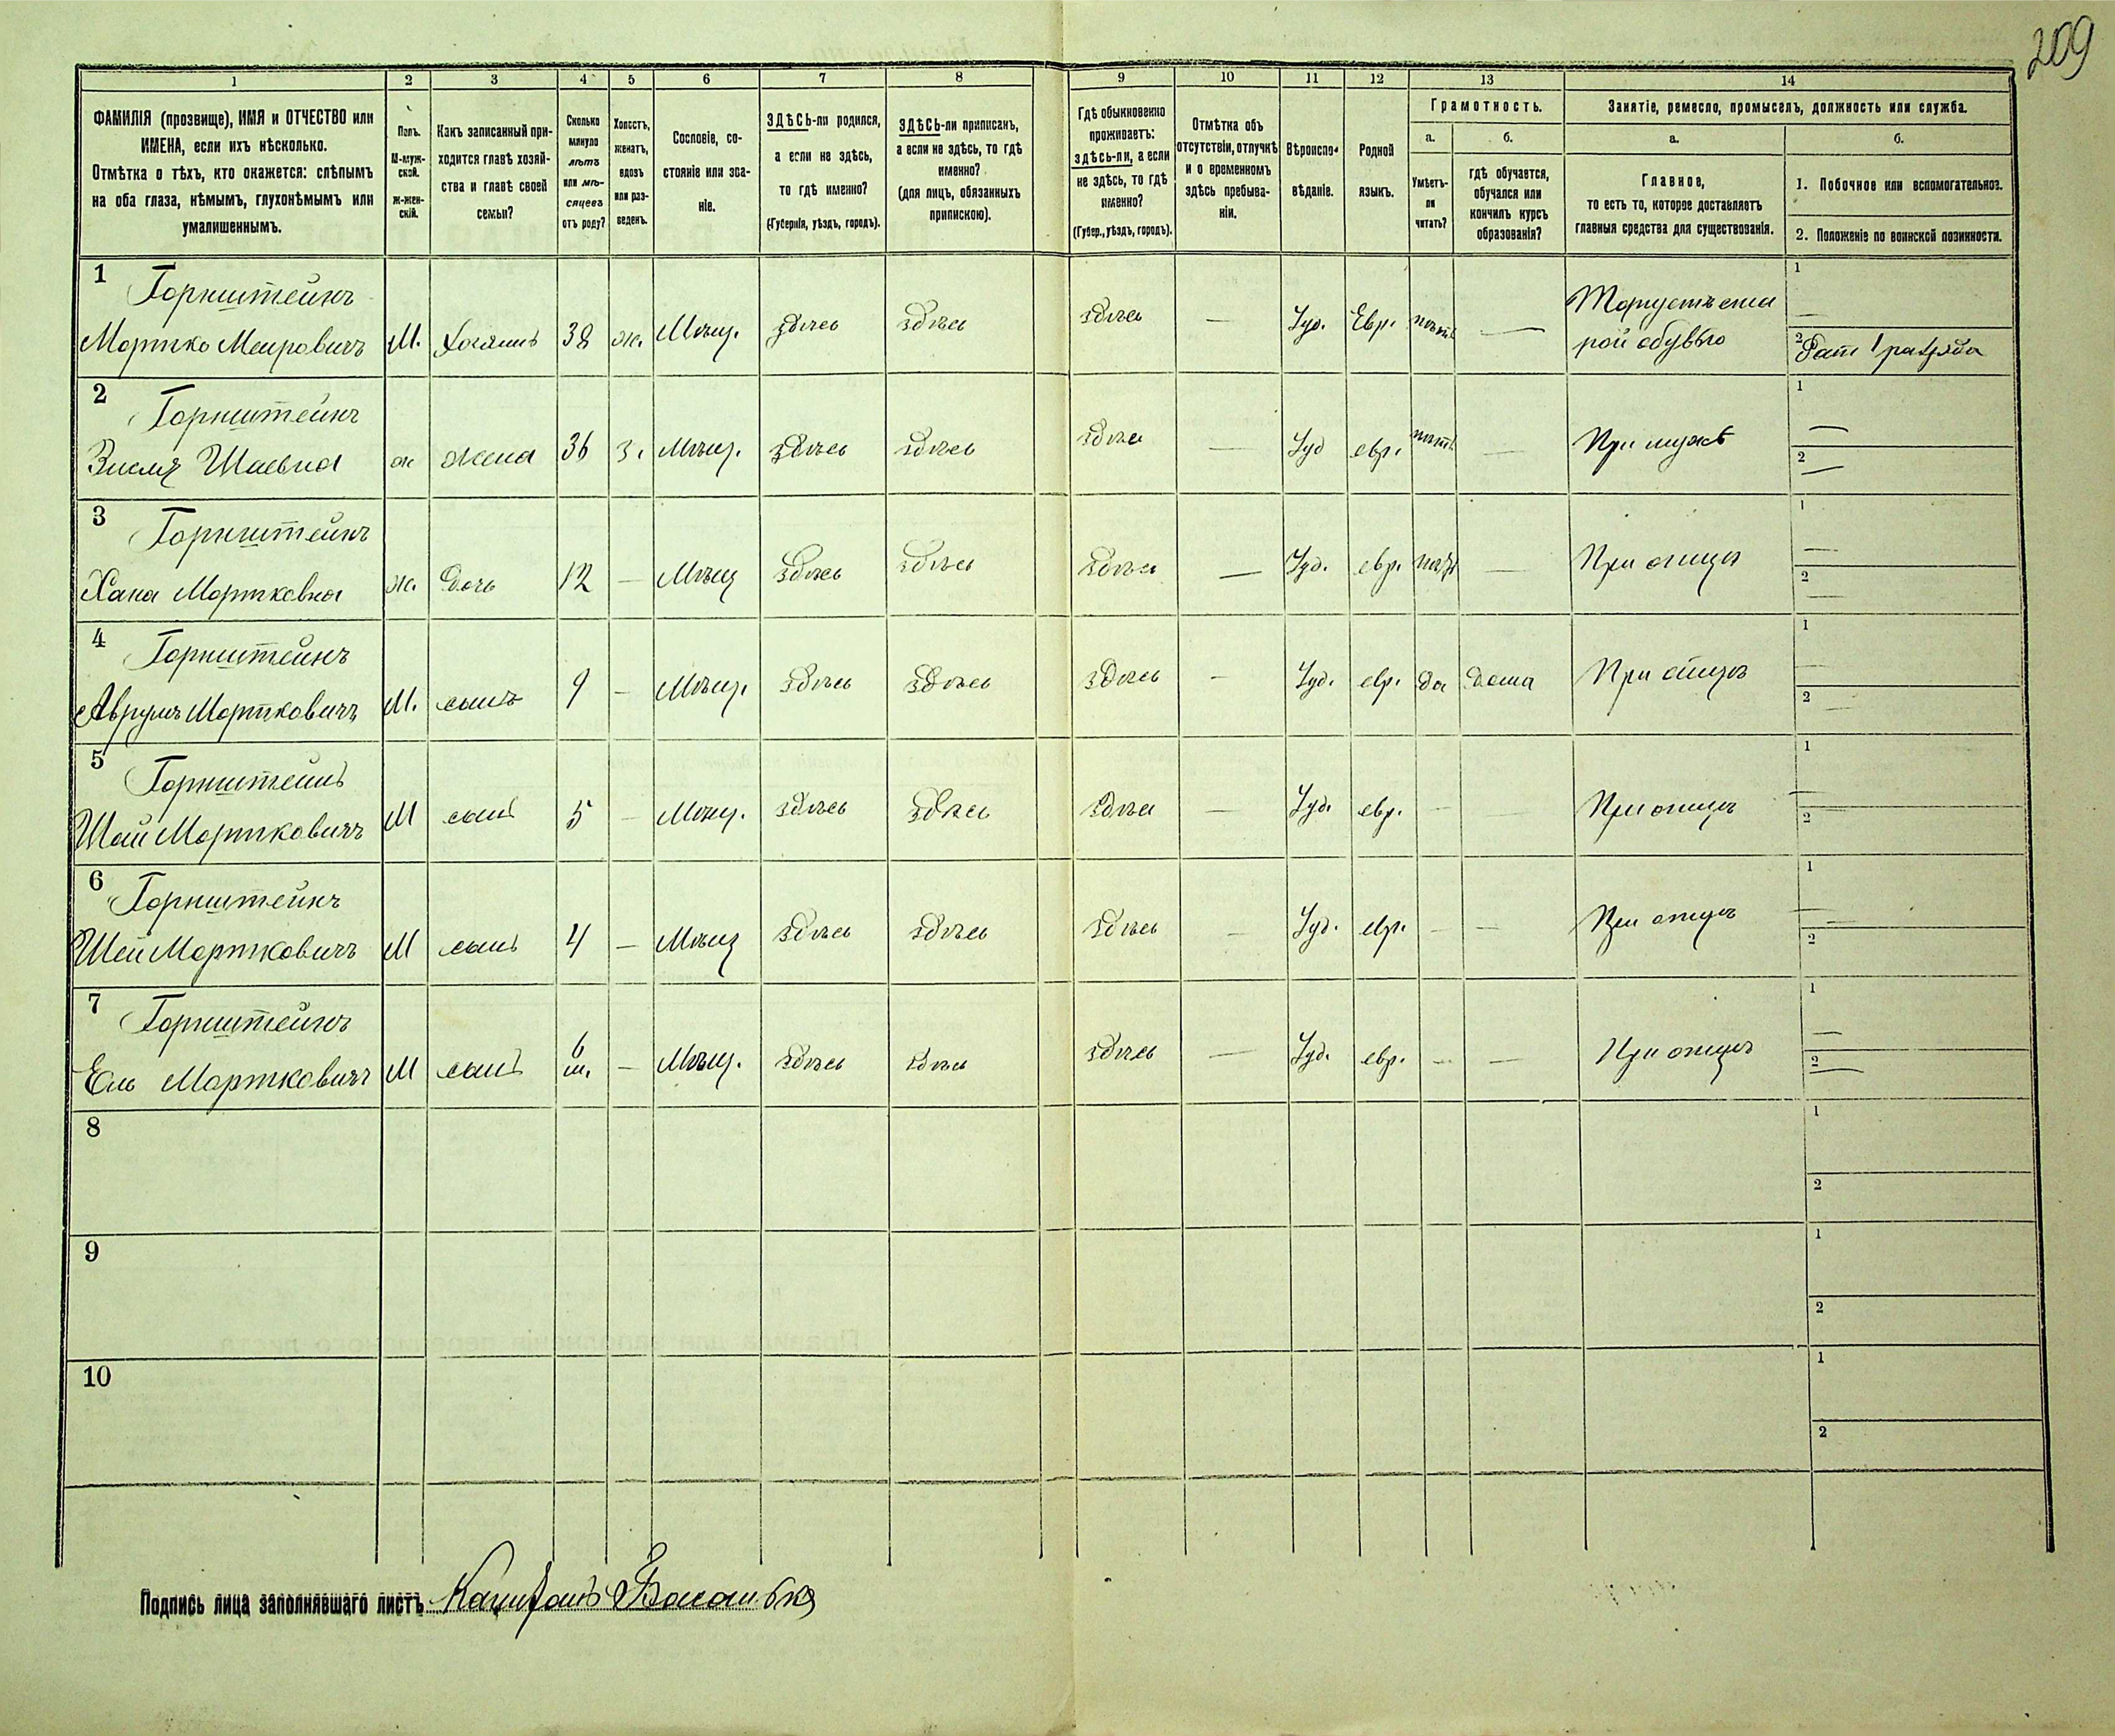 209
1 2 3 4 5 6 7 8 9 10 11 12 13 14
ФАМИЛІЯ (прозвище), ИМЯ и ОТЧЕСТВО или
ИМЕНА, если ихъ нѣсколько.
Отмѣтка о тѣхъ, кто окажется: слѣпымъ
на оба глаза, нѣмымъ, глухонѣмымъ или
умалишеннымъ.
Полъ.
М-муж-
ской.
ж-жен-
скій.
Какъ записанный при-
ходится главѣ хозяй-
ства и главѣ своей
семьи?
Сколько
минуло
лѣтъ
или мѣ-
сяцевъ
отъ роду?
Холостъ,
женатъ,
вдовъ
или раз-
веденъ.
Сословіе, со-
стояніе или зва-
ніе.
ЗДѢСЬ-ли родился,
а если не здѣсь,
то гдѣ именно?
(Губернія, уѣздъ, городъ).
ЗДѢСЬ-ли приписанъ,
а если не здѣсь, то гдѣ
именно?
(для лицъ, обязанныхъ
припискою).
Гдѣ обыкновенно
проживаетъ:
здѣсь-ли, а если
не здѣсь, то гдѣ
именно?
(Губер., уѣздъ, городъ).
Отмѣтка объ
отсутствіи, отлучкѣ
и о временномъ
здѣсь пребыва-
ніи.
Вѣроиспо-
вѣданіе.
Родной
языкъ.
Грамотность.
а.
Умѣетъ-
ли
читать?
б.
гдѣ обучается,
обучался или
кончилъ курсъ
образованія?
Занятіе, ремесло, промыселъ, должность или служба.
а.
Главное,
то есть то, которое доставляетъ
главныя средства для существованія.
б.
1. Побочное или вспомогательное.
2. Положеніе по воинской повинности.
1 Горнштейнъ
Мортко Меировичъ М. Хозяинъ 38 ж. Мѣщ. здѣсь здѣсь здѣсь — Іуд. Евр. —
Торгуетъ ста
рой обувью
1 —
2 Рат 1 разряда
2 Горнштейнъ
Шаевна ж жена 36 З. Мѣщ. здѣсь здѣсь здѣсь — Іуд евр. — При мужѣ
1 —
2 —
3 Горнштейнъ
Хана Мортковна ж. дочь 12 — Мѣщ здѣсь здѣсь здѣсь — Іуд. евр. — При отцѣ
1 —
2 —
4 Горнштейнъ
Аврумъ Мортковичъ М. сынъ 9 — Мѣщ. здѣсь здѣсь здѣсь — Іуд. евр. да дома При отцѣ
1 —
2 —
5 Горнштейнъ
Шай Мортковичъ М сынъ 5 — Мѣщ. здѣсь здѣсь здѣсь — Іуд. евр. — — При отцѣ
1 —
2 —
6 Горнштейнъ
Мортковичъ М сынъ 4 — Мѣщ здѣсь здѣсь здѣсь — Іуд. евр. — — При отцѣ
1 —
2 —
7 Горнштейнъ
Ель Мортковичъ М сынъ 6 м. — Мѣщ. здѣсь здѣсь здѣсь — Іуд. евр. — — При отцѣ
1 —
2 —
8
1
2
9
1
2
10
1
2
Подпись лица заполнявшаго листъ